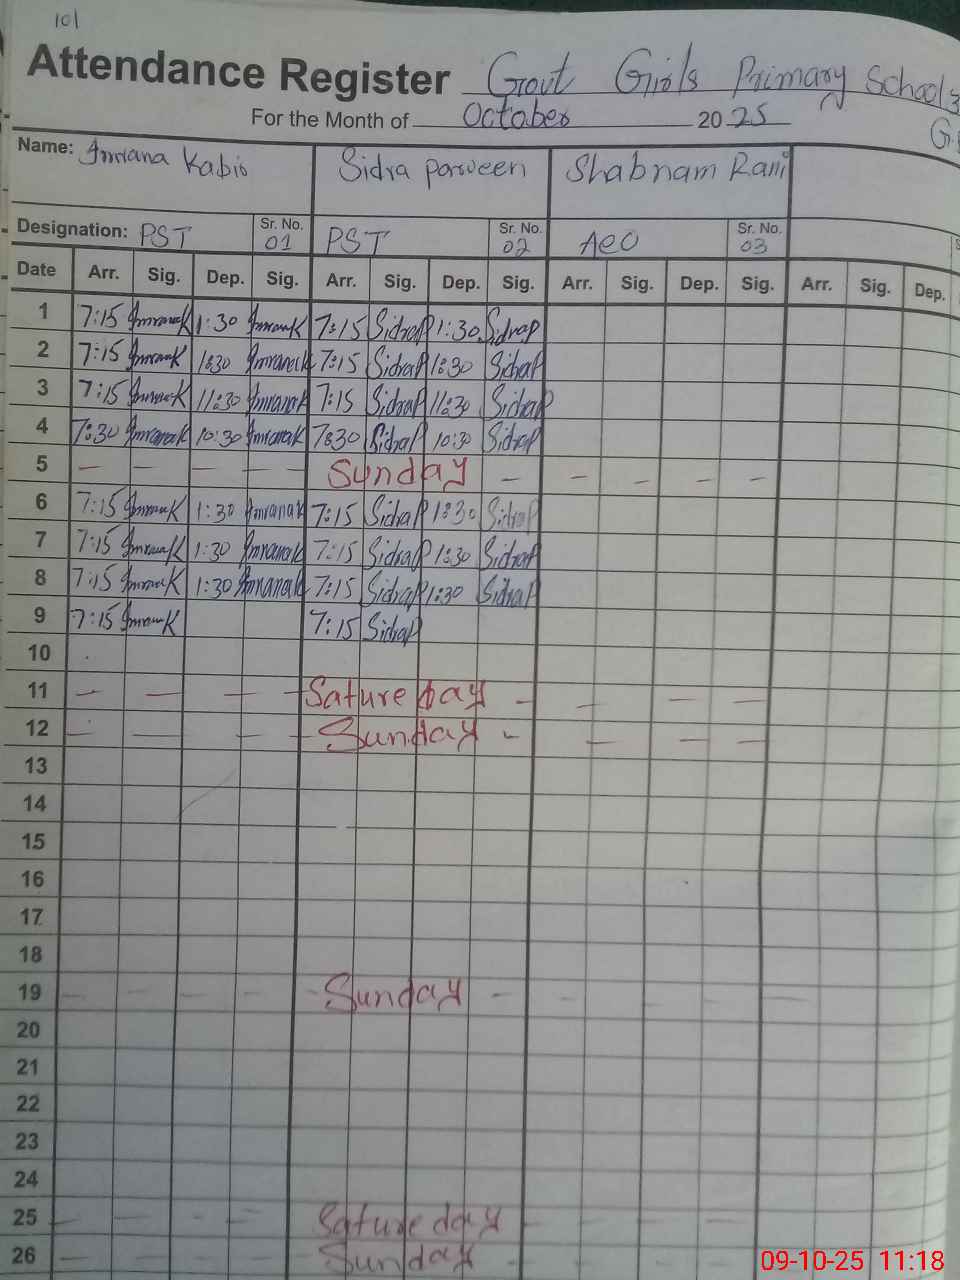 101
Attendance Register Govt Girls Primary School
For the Month of October 2025
Name: Imrana Kabir Sidra Parveen Shabnam Rani
Designation: PST Sr. No. 01 PST Sr. No. 02 AEO Sr. No. 03
Date Arr. Sig. Dep. Sig. Arr. Sig. Dep. Sig. Arr. Sig. Dep. Sig. Arr. Sig. Dep.
1 7:15 ImranaK 1:30 ImranaK 7:15 SidraP 1:30 SidraP
2 7:15 ImranaK 1:30 ImranaK 7:15 SidraP 1:30 SidraP
3 7:15 ImranaK 11:30 ImranaK 7:15 SidraP 11:30 SidraP
4 7:30 ImranaK 10:30 ImranaK 7:30 SidraP 10:30 SidraP
5 — — — — Sunday — — — — —
6 7:15 ImranaK 1:30 ImranaK 7:15 SidraP 1:30 SidraP
7 7:15 ImranaK 1:30 ImranaK 7:15 SidraP 1:30 SidraP
8 7:15 ImranaK 1:30 ImranaK 7:15 SidraP 1:30 SidraP
9 7:15 ImranaK 7:15 SidraP
10
11 — — — — Sature day — — — —
12 — — — — Sunday — — — —
13
14
15
16
17
18
19 — — — — - Sunday — — — —
20
21
22
23
24
25 — — — — Sature day — — — —
26 — — — — Sunday - — — — —
09-10-25 11:18